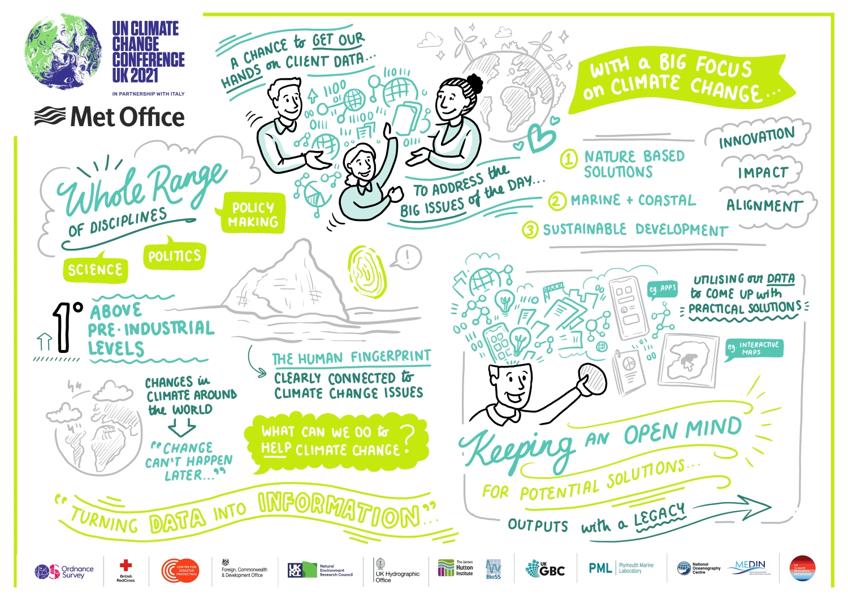 UN CLIMATE
CHANGE
CONFERENCE
UK 2021
IN PARTNERSHIP WITH ITALY
Met Office
A CHANCE to GET OUR
HANDS on CLIENT DATA...
TO ADDRESS the
BIG ISSUES of the DAY...
WITH a BIG FOCUS
on CLIMATE CHANGE...
1 NATURE BASED
SOLUTIONS
2 MARINE + COASTAL
3 SUSTAINABLE DEVELOPMENT
INNOVATION
IMPACT
ALIGNMENT
Whole Range
OF DISCIPLINES
POLICY
MAKING
POLITICS
SCIENCE
!
1° ABOVE
PRE-INDUSTRIAL
LEVELS
THE HUMAN FINGERPRINT
CLEARLY CONNECTED to
CLIMATE CHANGE ISSUES
CHANGES in
CLIMATE AROUND
the WORLD
"CHANGE
CAN'T HAPPEN
LATER..."
WHAT CAN WE DO to
HELP CLIMATE CHANGE?
"TURNING DATA INTO INFORMATION"...
eg APPS
UTILISING our DATA
to COME UP with
PRACTICAL SOLUTIONS
eg. INTERACTIVE
MAPS
Keeping AN OPEN MIND
FOR POTENTIAL SOLUTIONS...
OUTPUTS with a LEGACY
OS Ordnance
Survey
British
RedCross
Foreign, Commonwealth
& Development Office
UKRI
Natural
Environment
Research Council
UK Hydrographic
Office
The James
Hutton
Institute
BioSS
UKGBC
PML Plymouth Marine
Laboratory
National
Oceanography
Centre
MEDIN